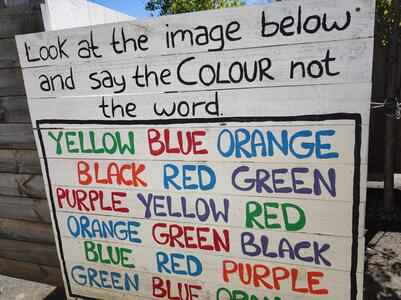 Look at the image below
and say the COLOUR not
the word.
YELLOW BLUE ORANGE
BLACK RED GREEN
PURPLE YELLOW RED
ORANGE GREEN BLACK
BLUE RED PURPLE
GREEN BLUE ORANGE